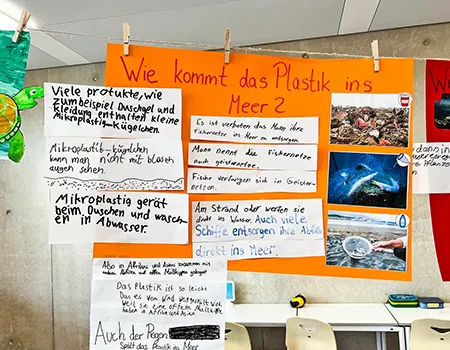 Wie kommt das Plastik ins
Meer?
Viele produkte, wie
zum beispiel Duschgel und
kleidung enthalten kleine
Mikroplastig-kügelchen.
Mikroplastik-kügelchen
kann man nicht mit blosen
augen sehen.
Mikroplastig gerät
beim Duschen und wasch-
en in Abwasser.
Es ist verboten das Mann ihre
fischernetze im Meer zu entsorgen
Mann nennt die Fischernetze
auch geisternetze.
Fische verfangen sich in Geister-
netzen.
Am Strand oder werfen sie
direkt ins Wasser. Auch viele
Schiffe entsorgen ihre Abfälle
direkt ins Meer.
Also in Afrika und Asien zusammen mit
anderen Abfällen auf offen Mülldeponien gelagert
Das Plastik ist so leicht
Das es vom Wind weggeweht wird
weil sie eine offene
haben in Afrika und Asien
Auch der Regen
spült das Plastik ins Meer
W
dann in
Pflanze